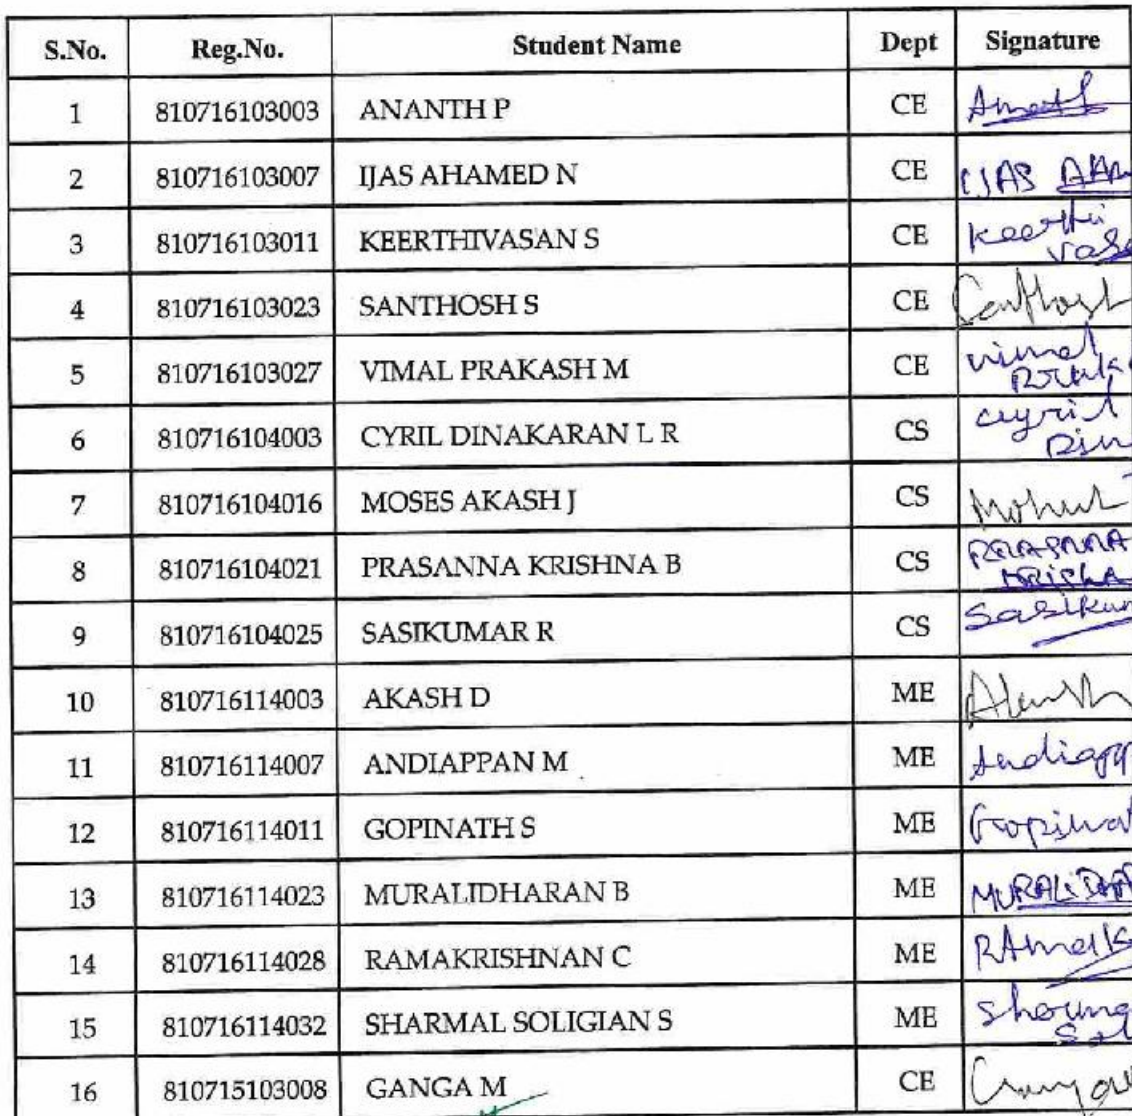 S.No. Reg.No. Student Name Dept Signature
1 810716103003 ANANTH P CE Ananth
2 810716103007 IJAS AHAMED N CE IJAS AHAM
3 810716103011 KEERTHIVASAN S CE Keerthi
Vase
4 810716103023 SANTHOSH S CE Santhosh
5 810716103027 VIMAL PRAKASH M CE vimal
6 810716104003 CYRIL DINAKARAN L R CS cyril
Din
7 810716104016 MOSES AKASH J CS
8 810716104021 PRASANNA KRISHNA B CS PRASANNA
KRISHA
9 810716104025 SASIKUMAR R CS Sasikum
10 810716114003 AKASH D ME
11 810716114007 ANDIAPPAN M ME Andiapp
12 810716114011 GOPINATH S ME Gopinat
13 810716114023 MURALIDHARAN B ME MURALIDHAR
14 810716114028 RAMAKRISHNAN C ME RAmaK
15 810716114032 SHARMAL SOLIGIAN S ME Sharma
Sol
16 810715103008 GANGA M CE